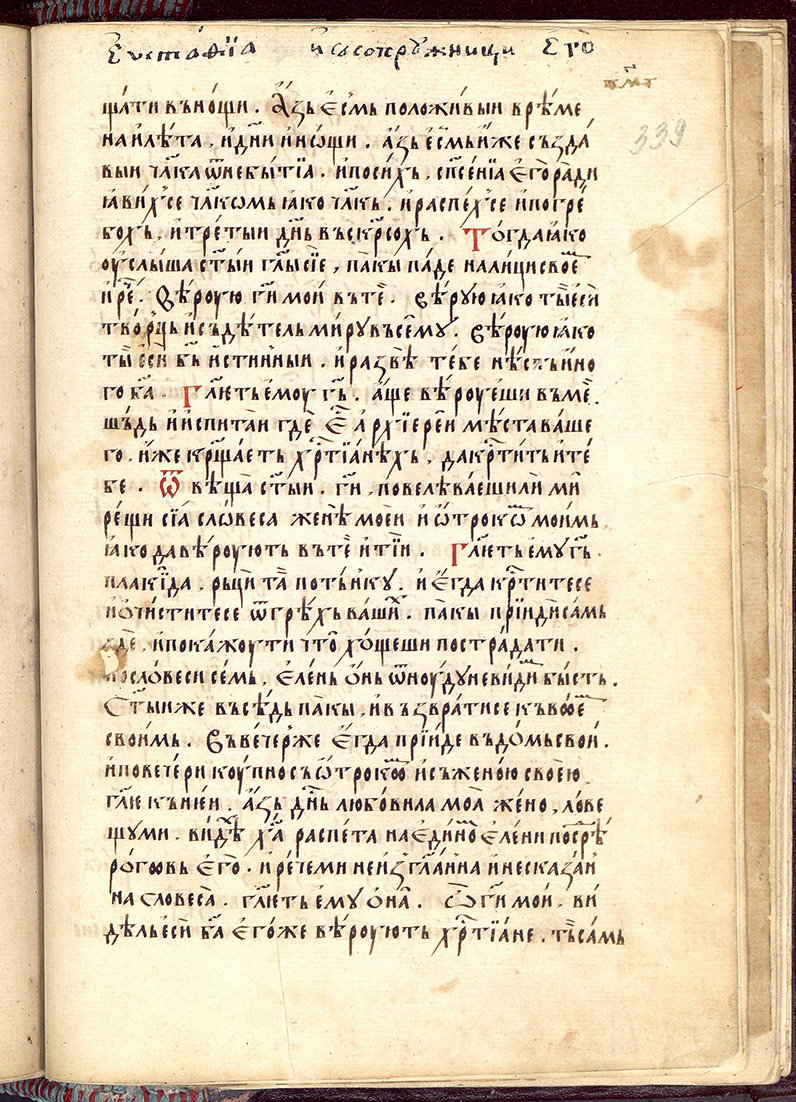 Еѵстаѳїа и сасопрꙋжници Єго
339
щати въ нощи. Азь єсмь положивыи врѣме
на и лѣта, и дн҃и и нѡщи. азь єсмь иже създа
выи чл҃ка ѿ небытїа. и посихь, сп҃сенїа єго ради
ꙗвих се чл҃комь ꙗко чл҃кь. и распех се и погре
бох, и третыи дн҃ь въскр҃сох. Тогда ꙗко
оуслыша ст҃ыи гл҃ь сїе, пакы паде на лици своѐ
и ре҃. Вѣроую г҃и мои въ те. вѣрꙋю ꙗко ты єси
творць и съдѣтель мирꙋ въсемꙋ. вѣроую ꙗко
ты єси б҃ь истинныи. и развѣ тебе нѣсть ино
го б҃а. Гл҃ѥть ѥмоу г҃ь. аще вѣроуеши въ ме
шьдь и испитаи где є҃ архїереи мѣста ваше
го. иже кр҃щаеть хр҃тїанѣхь, да кр҃тить и те
бе. Ѿвѣща ст҃ыи. г҃и, повелѣваеши ли ми
рещи сїа словеса женѣ моеи и ѡтрокѡ моимь
ꙗко да вѣроують въ те и тїи. Гл҃ѥть ѥмꙋ г҃ь
плакїда, рьци та потьнкꙋ. и єгда кр҃титесе
и очиститесе ѿ грѣхь вашиⷯ. пакы прїиди самь
зде, и покажоу ти что хощеши пострадати.
по словеси семь, єлень онь ѿноудꙋ невидиⷨ бысть.
Ст҃ыи же въсѣдь пакы, и възврати се къ воѡⷨ
своимь. Въ вечер же єгда прїиде въ домь свои.
и по вечери коупно съ ѡтрокѡⷨ и съ женою своею
гл҃ѥ къ ниеи. азь дн҃ь любовила моа жено, лове
щꙋ ми. видѣⷯ х҃а распета на єдиноⷨ єлени посрѣ
рогѡвь єго. и рече ми неизгл҃анна и несказаⷩ
на словеса. гл҃ѥть емꙋ она. Ѡ г҃и мои, ви
дѣль єси б҃а єгоже вѣроують хр҃тїане. тъ самь